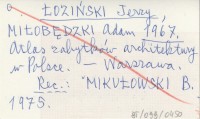 ŁOZIŃSKI Jerzy,
MIŁOBĘDZKI Adam 1967.
Atlas zabytków architektury
w Polsce. – Warszawa.
Rec.: MIKUŁOWSKI B.
1975.
BF/099/0450